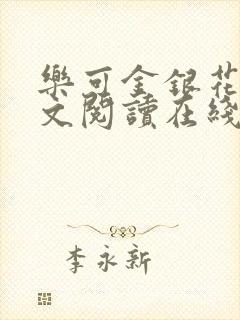 樂可金銀花
文閱讀在綫
李永新